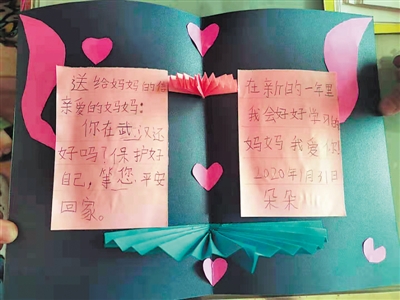 送给妈妈的信
亲爱的妈妈：
你在武汉还
好吗？保护好
自己，等您平安
回家。
在新的一年里
我会好好学习的
妈妈我爱你
2020年1月31日
朵朵